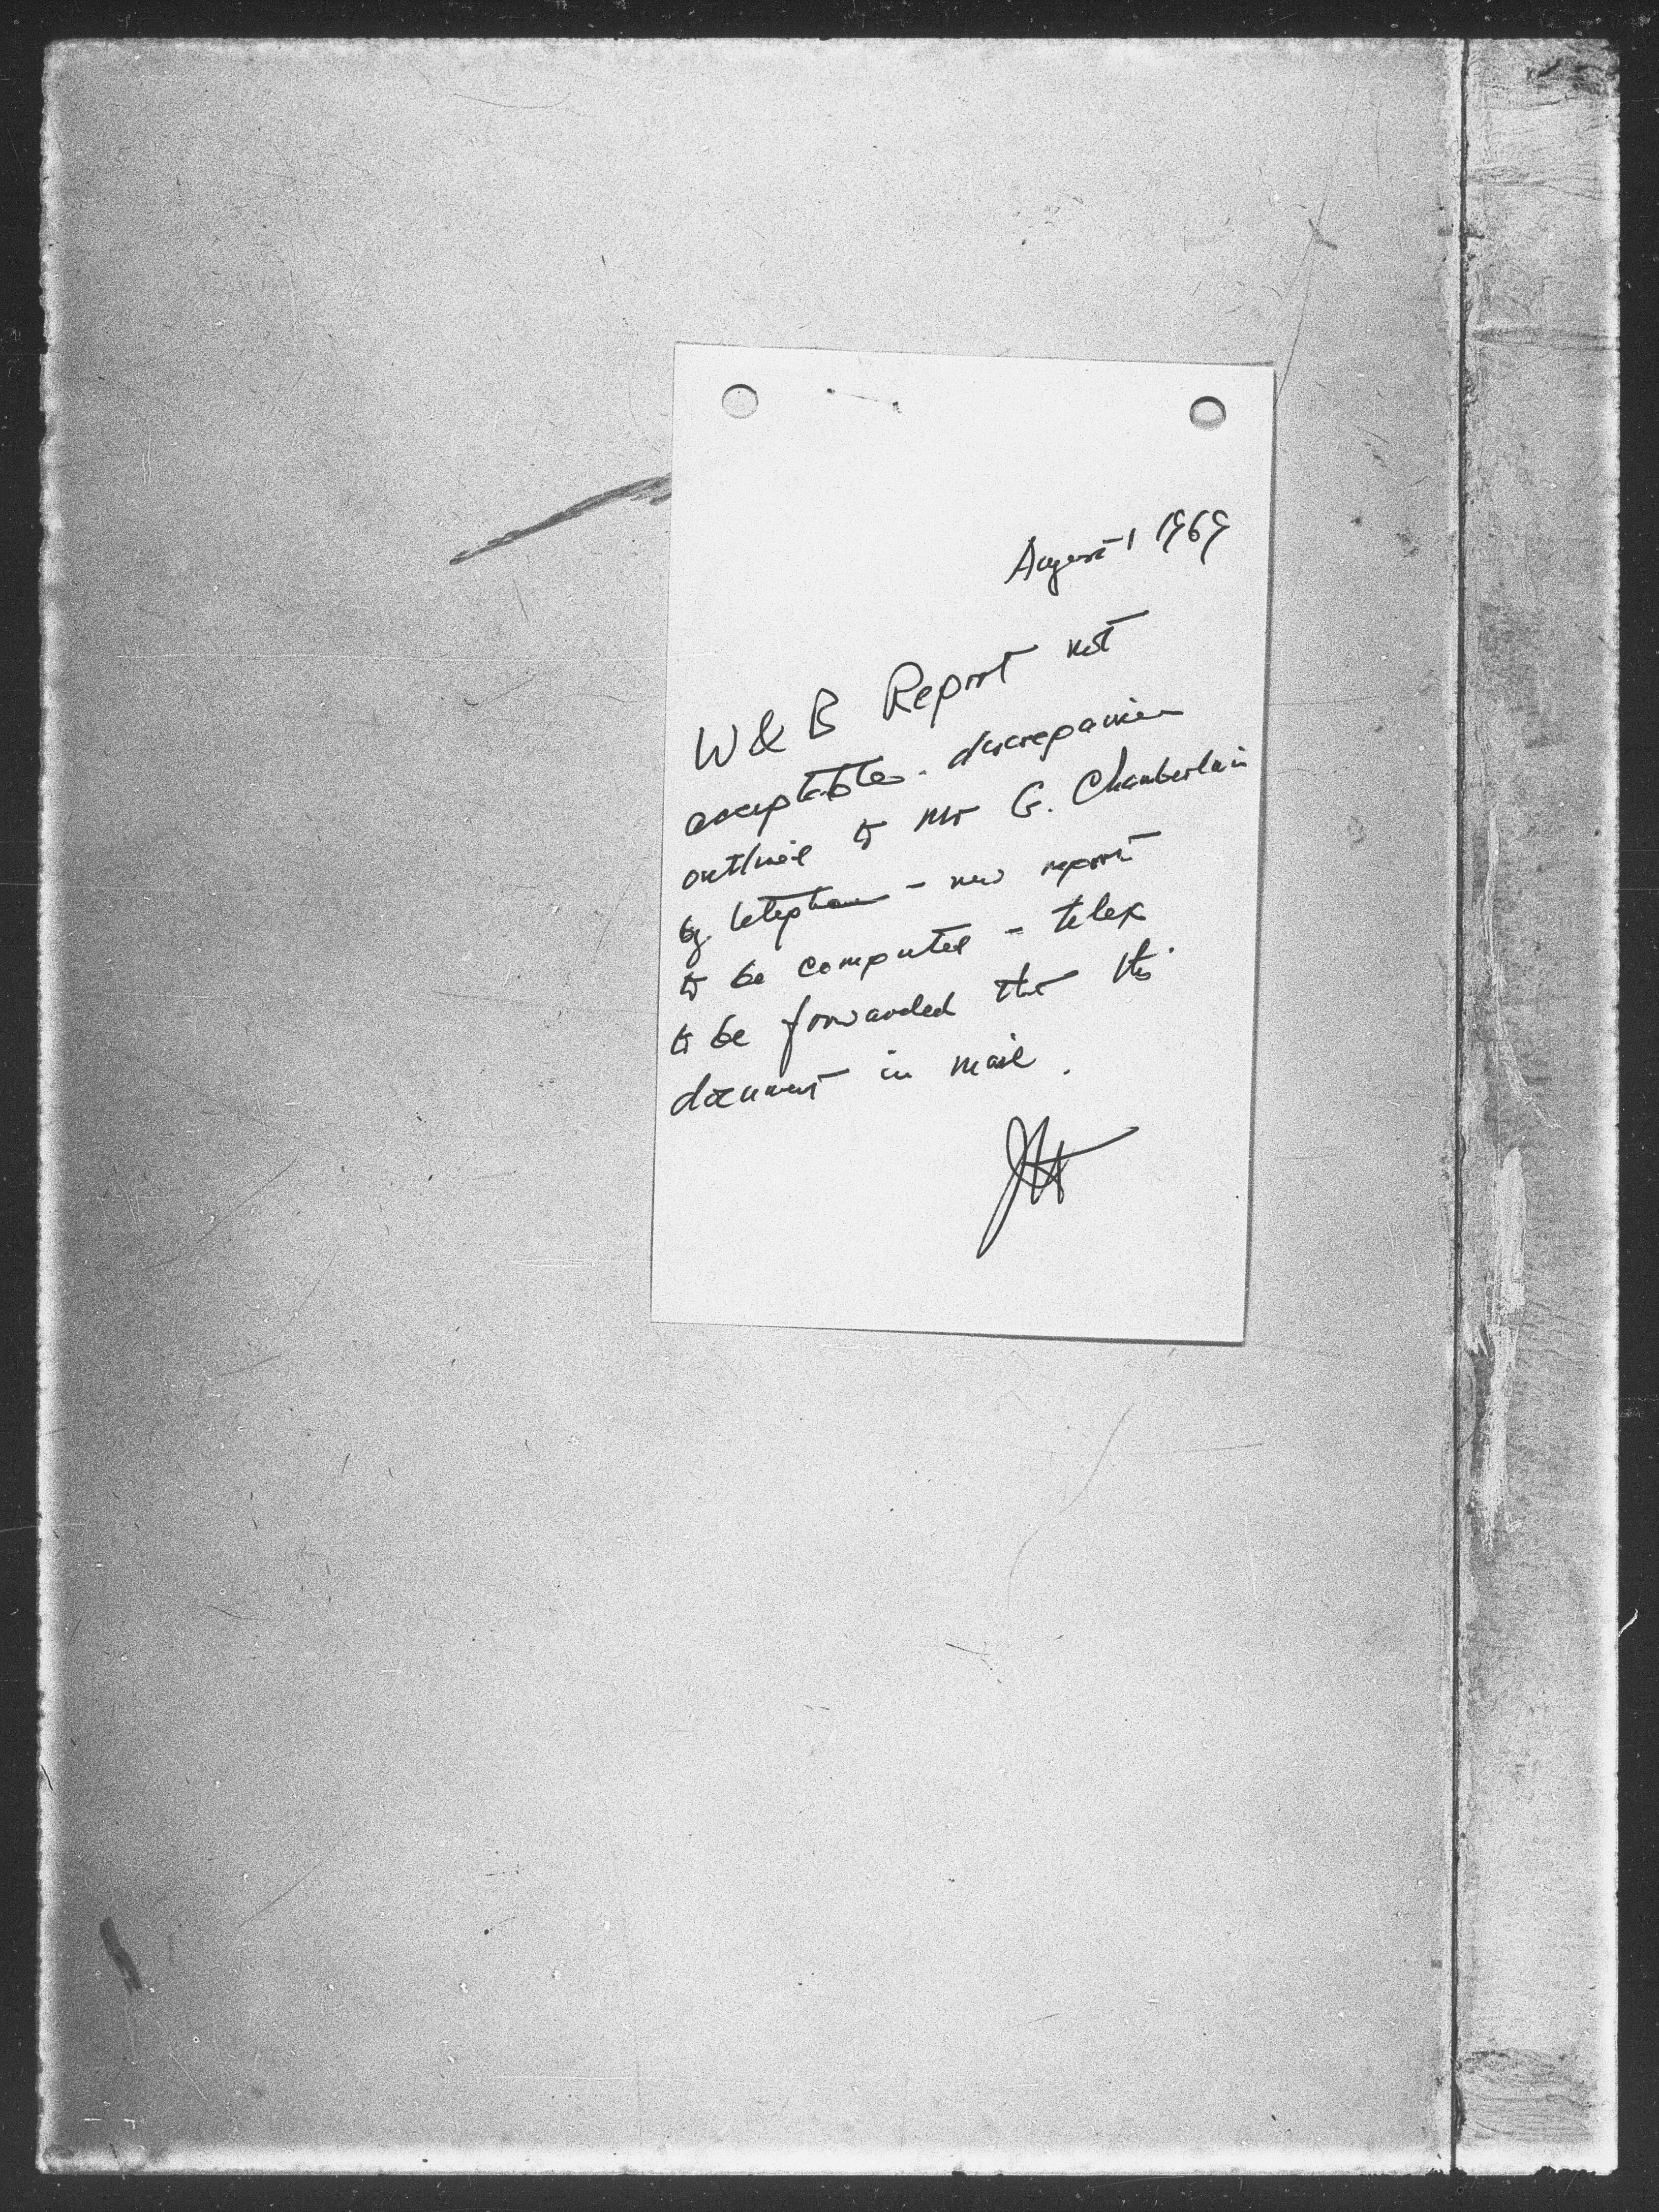 August 1 1969
W & B Report not
acceptable. discrepancies
outlined to Mr G. Chamberlain
by telephone - new report
to be computed - telex
to be forwarded that this
document in mail.